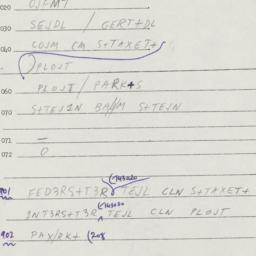 020
030 SEJDL / GERT+DL
040 COJM CM S+TAXET+
PLOJT
PLOJT / PARK+S
060
070 S+TEJ1N BA//M S+TEJN
071 —
072 0
901 FED3RS+T3R TEJL CLN S+TAXET+
1NT3RS+T3R TEJL CLN PLOJT
902 PAX/RK+ (208